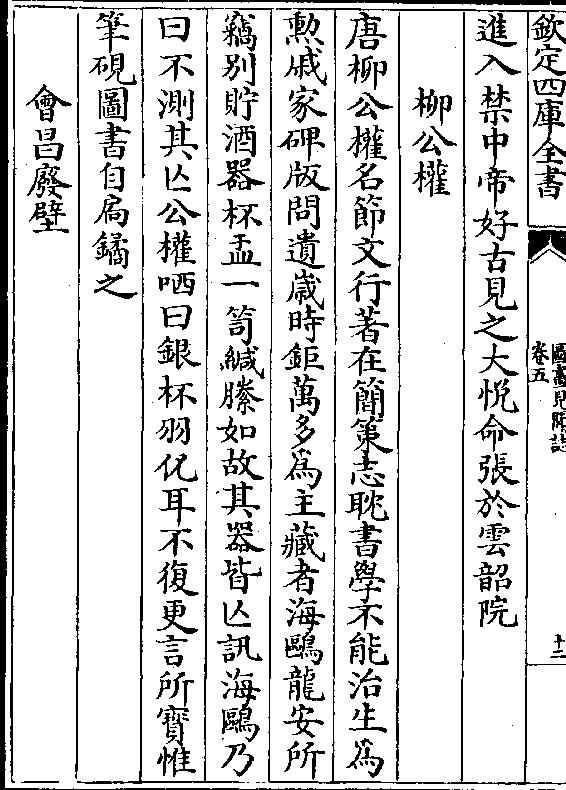 欽定四庫全書
圖畫見聞誌
卷五
十二
進入禁中帝好古見之大悅命張於雲韶院
柳公權
唐柳公權名節文行著在簡策志耽書學不能治生為
勲戚家碑版問遺嵗時鉅萬多為主藏者海鷗龍安所
竊别貯酒器杯盂一笥緘縢如故其器皆亾訊海鷗乃
曰不測其亾公權哂曰銀杯羽化耳不復更言所寳惟
筆硯圖書自扃鐍之
會昌廢壁